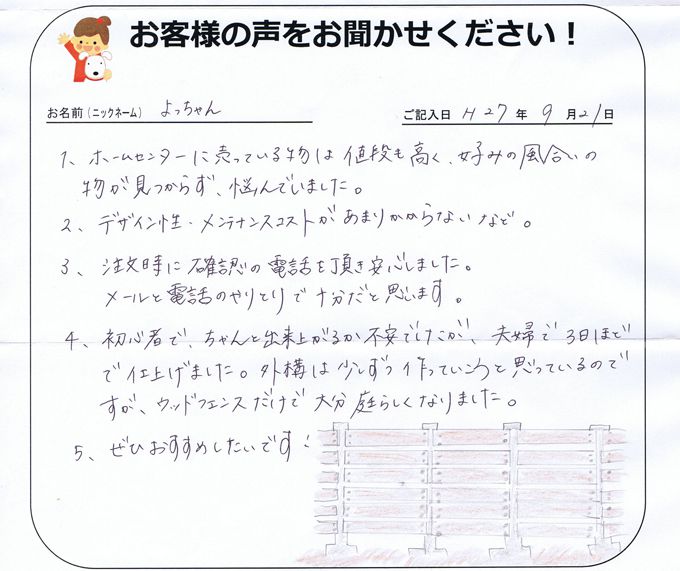 お客様の声をお聞かせください！
お名前(ニックネーム) よっちゃん ご記入日 H27年 9月21日
1、ホームセンターに売っている物は値段も高く、好みの風合いの
物が見つからず、悩んでいました。
2、デザイン性・メンテナンスコストがあまりかからないなど。
3、注文時に確認の電話を頂き安心しました。
メールと電話のやりとりで十分だと思います。
4、初心者で、ちゃんと出来上がるか不安でしたが、夫婦で3日ほど
で仕上げました。外構は少しずつ作っていこうと思っているので
すが、ウッドフェンスだけで大分庭らしくなりました。
5、ぜひおすすめしたいです！